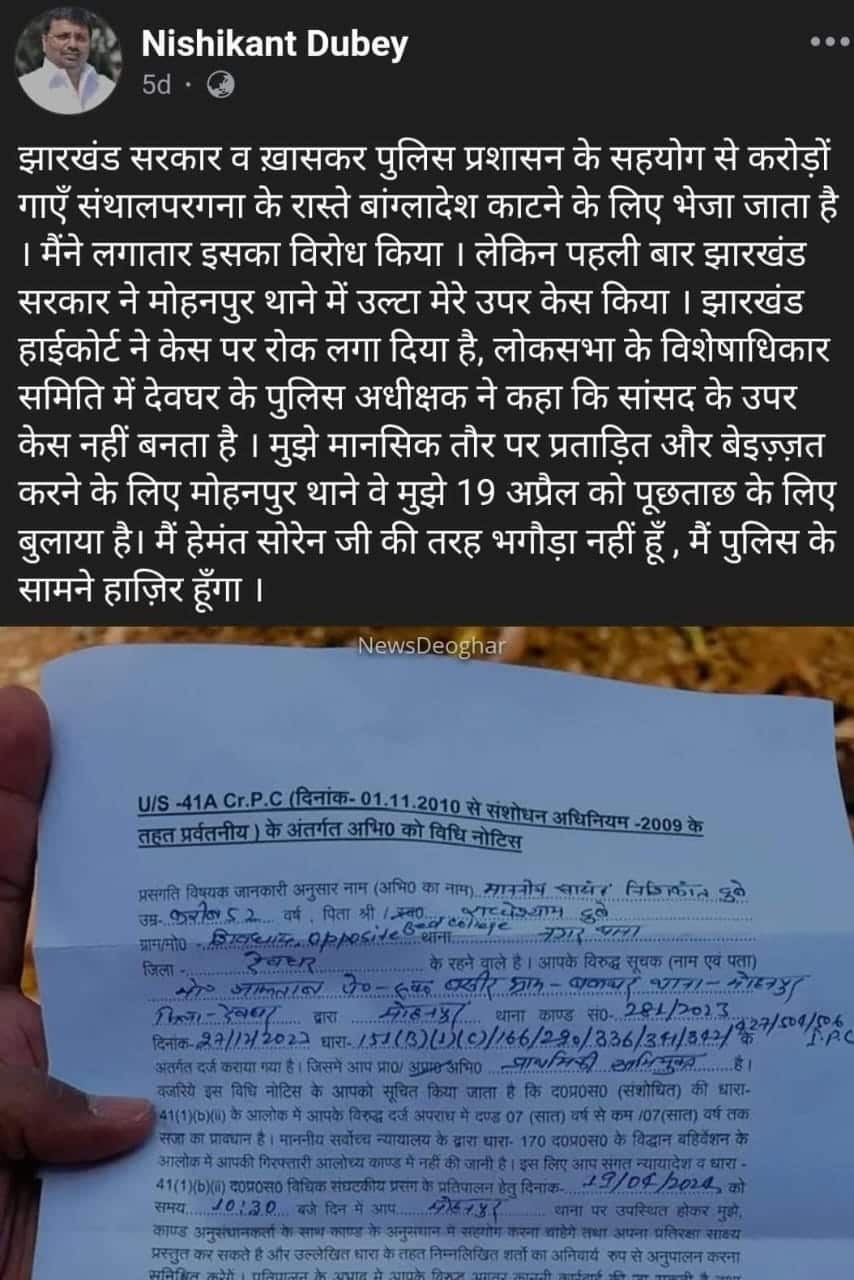 Nishikant Dubey
5d
झारखंड सरकार व ख़ासकर पुलिस प्रशासन के सहयोग से करोड़ों
गाएँ संथालपरगना के रास्ते बांग्लादेश काटने के लिए भेजा जाता है
। मैंने लगातार इसका विरोध किया । लेकिन पहली बार झारखंड
सरकार ने मोहनपुर थाने में उल्टा मेरे उपर केस किया । झारखंड
हाईकोर्ट ने केस पर रोक लगा दिया है, लोकसभा के विशेषाधिकार
समिति में देवघर के पुलिस अधीक्षक ने कहा कि सांसद के उपर
केस नहीं बनता है । मुझे मानसिक तौर पर प्रताड़ित और बेइज़्ज़त
करने के लिए मोहनपुर थाने वे मुझे 19 अप्रैल को पूछताछ के लिए
बुलाया है। मैं हेमंत सोरेन जी की तरह भगौड़ा नहीं हूँ , मैं पुलिस के
सामने हाज़िर हूँगा ।
NewsDeoghar
U/S -41A Cr.P.C (दिनांक- 01.11.2010 से संशोधन अधिनियम -2009 के
तहत प्रर्वतनीय ) के अंतर्गत अभि0 को विधि नोटिस
प्रसगति विषयक जानकारी अनुसार नाम (अभि0 का नाम) माननीय सांसद निशिकांत दुबे
उम्र- करीब 52 वर्ष , पिता श्री / स्व0 राधेश्याम दुबे
ग्राम/मो0 - opposite Bed college थाना नगर थाना
जिला - देवघर के रहने वाले है। आपके विरुद्ध सूचक (नाम एवं पता)
थाना- मोहनपुर
जिला- देवघर द्वारा मोहनपुर थाना काण्ड सं0- 281/2023
दिनांक- धारा- 151(B)(1)(C)/166/290/336/341/342/427/504/506 I.P.C के
अतर्गत दर्ज कराया गया है। जिसमें आप प्रा0/ अप्रा0 अभि0 प्राथमिकी अभियुक्त है।
वजरिये इस विधि नोटिस के आपको सूचित किया जाता है कि द0प्र0स0 (संशोधित) की धारा-
41(1)(b)(ii) के आलोक में आपके विरुद्ध दर्ज अपराध में दण्ड 07 (सात) वर्ष से कम /07(सात) वर्ष तक
सजा का प्रावधान है। माननीय सर्वोच्च न्यायालय के द्वारा धारा- 170 द0प्र0स0 के विद्वान बहिर्वेशन के
आलोक में आपकी गिरफ्तारी आलोच्य काण्ड में नहीं की जानी है। इस लिए आप सगत न्यायादेश व धारा -
41(1)(b)(ii) द0प्र0स0 विधिक संघटकीय प्रसग के प्रतिपालन हेतु दिनांक- 19/04/2024 को
समय 10:30 बजे दिन में आप मोहनपुर थाना पर उपस्थित होकर मुझे,
काण्ड अनुसंधानकर्ता के साथ काण्ड के अनुसधान में सहयोग करना चाहेगे तथा अपना प्रतिरक्षा साक्ष्य
प्रस्तुत कर सकते है और उल्लेखित धारा के तहत निम्नलिखित शर्तो का अनिवार्य रुप से अनुपालन करना